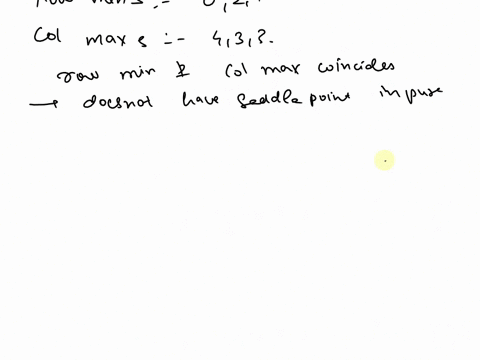 mins :- 0, 2,
Col maxs :- 4, 3, 3.
row min & Col max coincides
→ doesnot have saddle point in pure